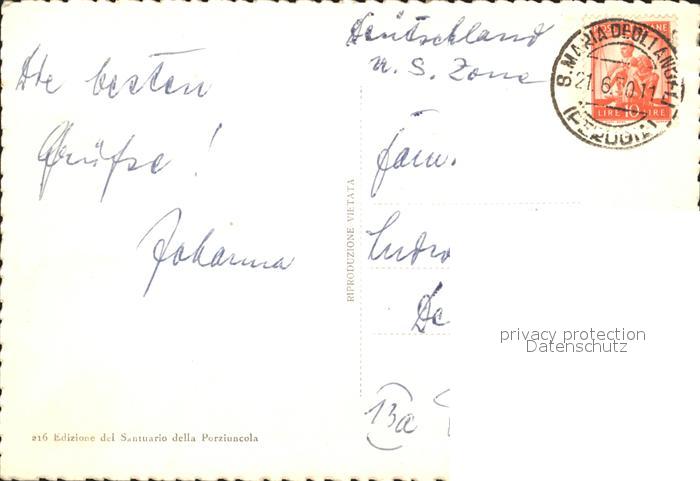 Die besten
Grüße!
Johanna
216 Edizione del Santuario della Porziuncola
RIPRODUZIONE VIETATA
Deutschland
U. S. Zone
Fam.
Ludw
De
13a
S. MARIA DEGLI ANGELI
21.6.50.11
(PERUGIA)
LIRE 10 LIRE
privacy protection
Datenschutz